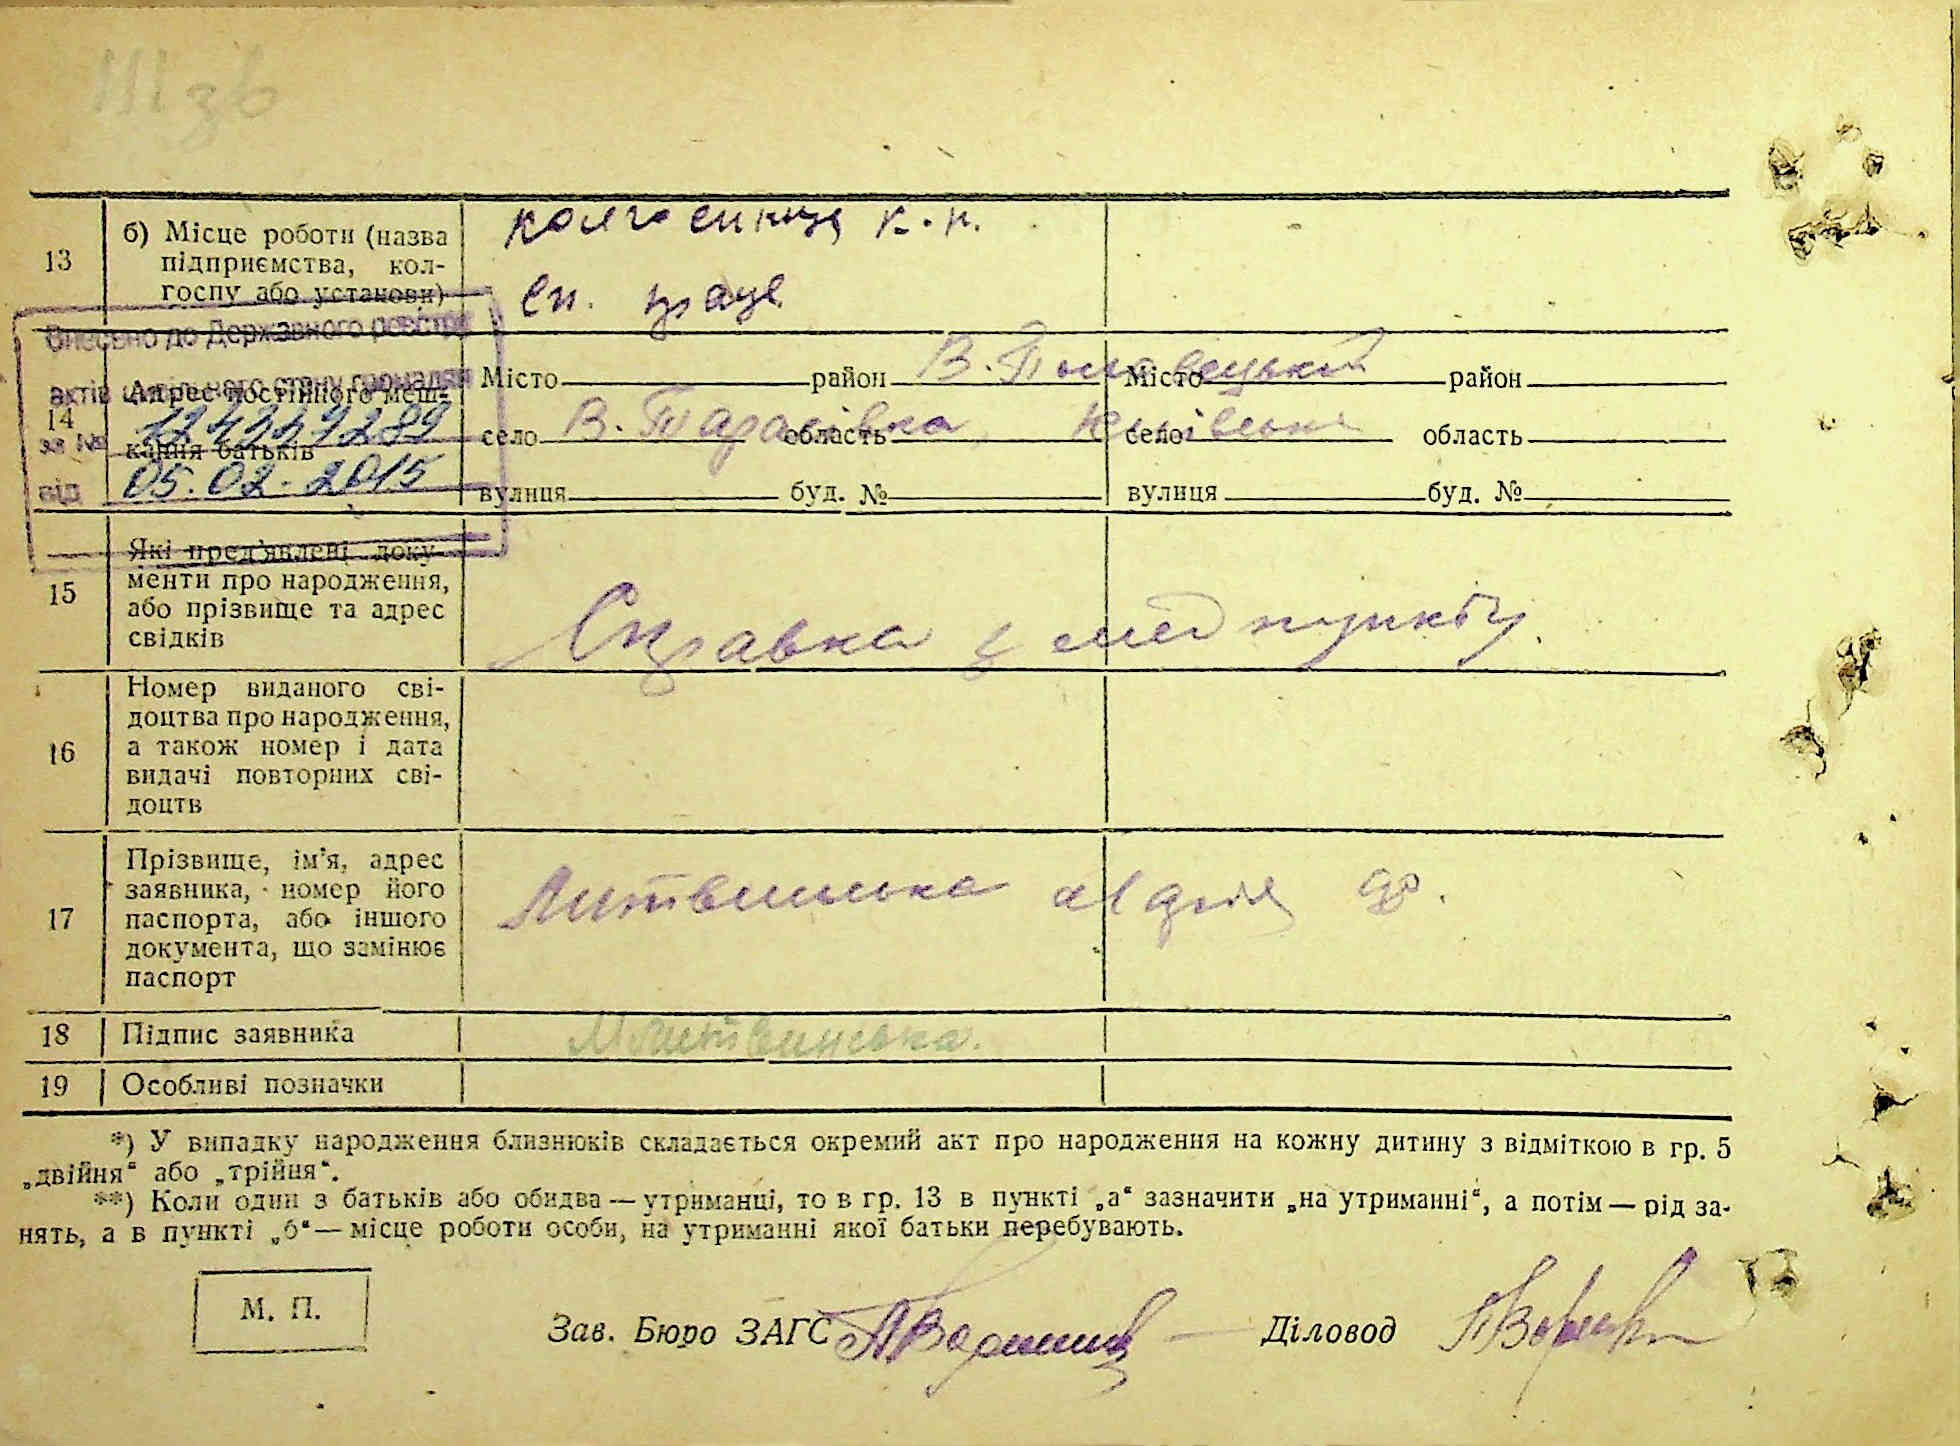 13
б) Місце роботи (назва
підприємства, кол-
госпу або установи)
колгоспниця к.н.
сп. праце
Внесено до Державного реєстру
актів цивільного стану громадян
за №
від 05.02.2015
14
Адрес постійного меш-
кання батьків
Місто район В. Половецький Місто район
село В. Тарасівка область Київська село область
вулиця буд. № вулиця буд. №
15
Які пред'явлені доку-
менти про народження,
або прізвище та адрес
свідків
Справка з медпункту.
16
Номер виданого сві-
доцтва про народження,
а також номер і дата
видачі повторних сві-
доцтв
17
Прізвище, ім'я, адрес
заявника, номер його
паспорта, або іншого
документа, що замінює
паспорт
Литвинська
18 Підпис заявника М Литвинська.
19 Особливі позначки
*) У випадку народження близнюків складається окремий акт про народження на кожну дитину з відміткою в гр. 5
„двійня“ або „трійня“.
**) Коли один з батьків або обидва — утриманці, то в гр. 13 в пункті „а“ зазначити „на утриманні“, а потім — рід за-
нять, а в пункті „б“ — місце роботи особи, на утриманні якої батьки перебувають.
М. П.
Зав. Бюро ЗАГС Діловод